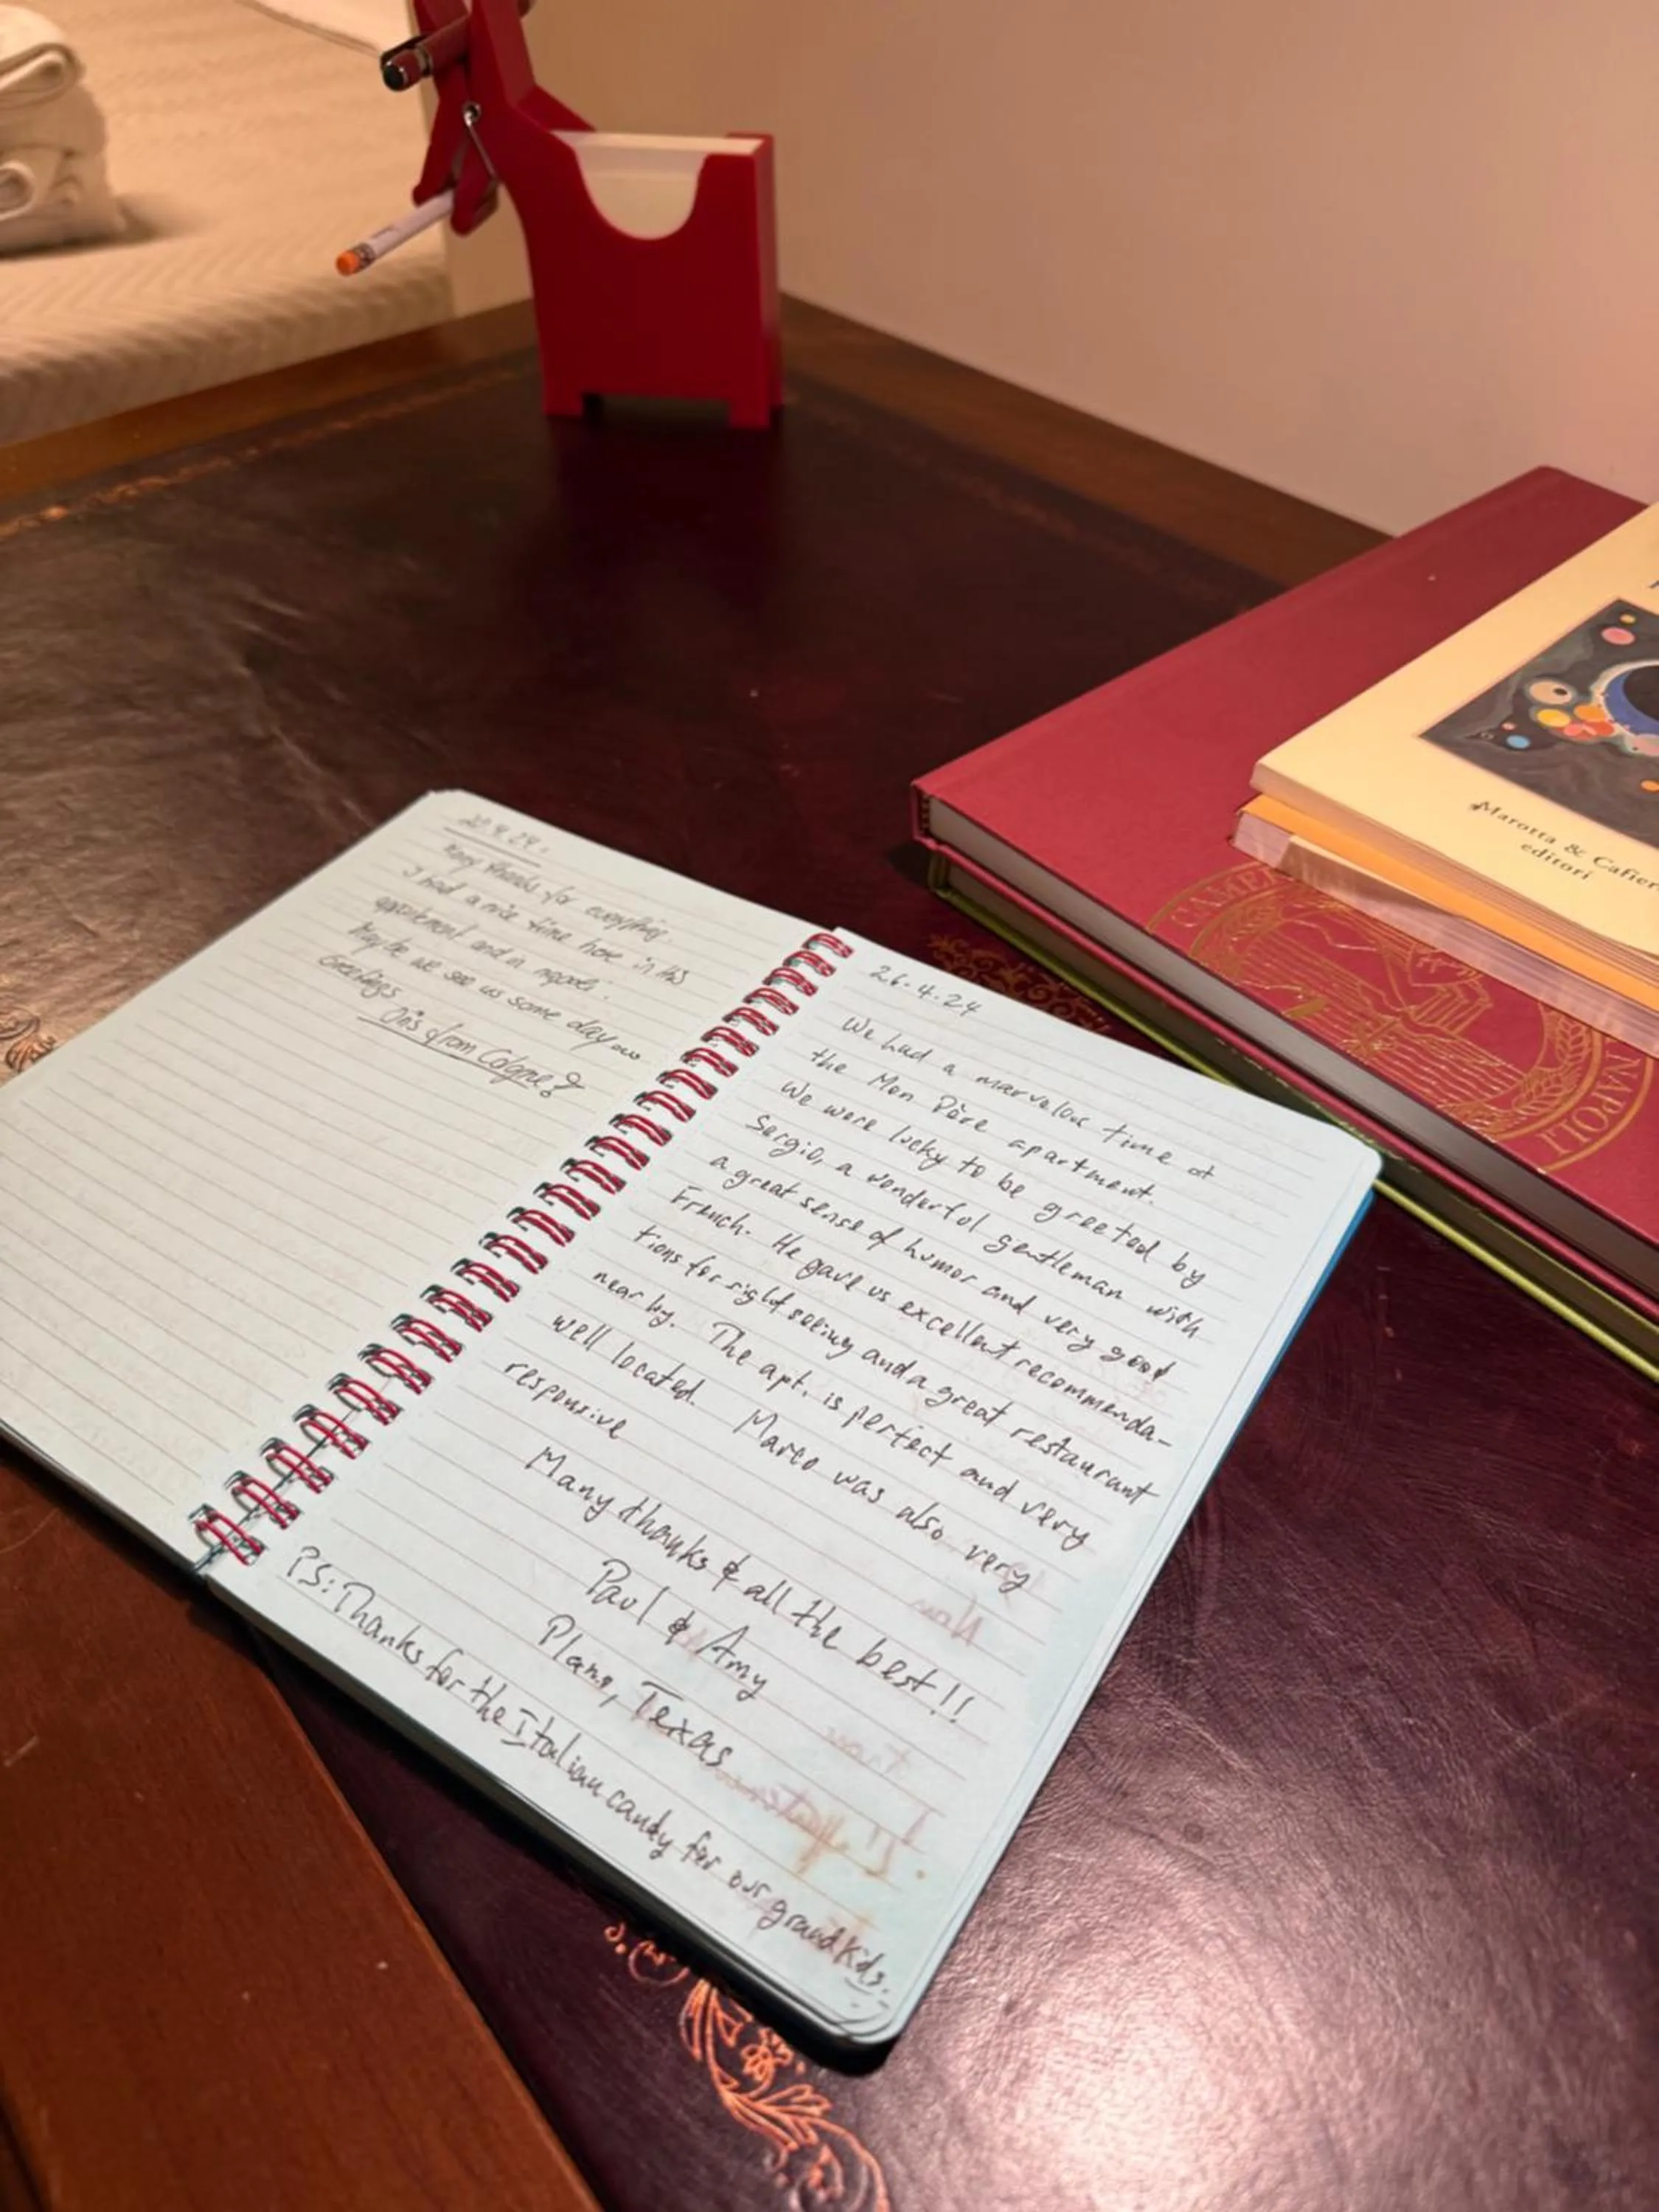 20.4.24.
Many thanks for everything.
I had a nice time here in this
appartement and in napoli.
Maybe we see us some day
Greetings
from Cologne
26.4.24
We had a marvelous time at
the Mon Père apartment.
We were lucky to be greeted by
Sergio, a wonderful gentleman with
a great sense of humor and very good
French. He gave us excellent recommenda-
tions for sightseeing and a great restaurant
near by. The apt. is perfect and very
well located. Marco was also very
responsive
Many thanks & all the best!!
Paul & Amy
Plano, Texas
PS: Thanks for the Italian candy for our grandkids.
Marotta & Cafier
editori
CAME
NAPOLI